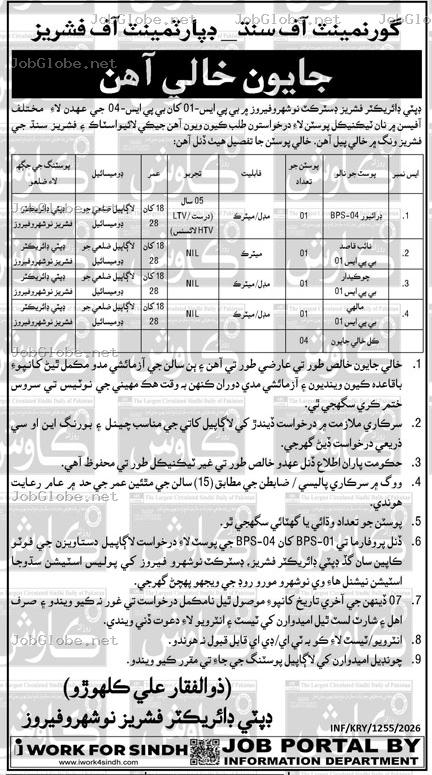 گورنمينٽ آف سنڌ_ ڊپارٽمينٽ آف فشريز
جايون خالي آهن
ڊپٽي ڊائريڪٽر فشريز ڊسٽرڪٽ نوشهروفيروز ۾ بي پي ايس-01 کان بي پي ايس-04 جي عهدن لاءِ مختلف
آفيسن ۾ نان ٽيڪنيڪل پوسٽن لاءِ درخواستون طلب ڪيون ويون آهن جيڪي لائيواسٽاڪ ۽ فشريز سنڌ جي
فشريز ونگ ۾ خالي پيل آهن. خالي پوسٽن جا تفصيل هيٺ ڏنل آهن:
ايس نمبر | پوسٽ جو نالو | پوسٽن جو تعداد | قابليت | تجربو | عمر | ڊوميسائيل | پوسٽنگ جي جڳهه لاءِ ضلعو
1. | ڊرائيور BPS-04 | 01 | مڊل/ميٽرڪ | 05 سال (درست LTV/ HTV لائسنس) | 18 کان 28 | لاڳاپيل ضلعي جو ڊوميسائيل | ڊپٽي ڊائريڪٽر فشريز نوشهروفيروز
2. | نائب قاصد بي پي ايس 01 | 01 | ميٽرڪ | NIL | 18 کان 28 | لاڳاپيل ضلعي جو ڊوميسائيل | ڊپٽي ڊائريڪٽر فشريز نوشهروفيروز
3. | چوڪيدار بي پي ايس 01 | 01 | مڊل/ميٽرڪ | NIL | 18 کان 28 | لاڳاپيل ضلعي جو ڊوميسائيل | ڊپٽي ڊائريڪٽر فشريز نوشهروفيروز
4. | مالهي بي پي ايس 01 | 01 | مڊل/ميٽرڪ | NIL | 18 کان 28 | لاڳاپيل ضلعي جو ڊوميسائيل | ڊپٽي ڊائريڪٽر فشريز نوشهروفيروز
ڪل خالي جايون | 04
1. خالي جايون خالص طور تي عارضي طور تي آهن ۽ ٻن سالن جي آزمائشي مدو مڪمل ٿيڻ کانپوءِ
باقاعده ڪيون وينديون ۽ آزمائشي مدي دوران ڪنهن به وقت هڪ مهيني جي نوٽيس تي سروس
ختم ڪري سگهجي ٿي.
2. سرڪاري ملازمت ۾ درخواست ڏيندڙ کي لاڳاپيل کاتي جي مناسب چينل ۽ بورنگ اين او سي
ذريعي درخواست ڏيڻ گهرجي.
3. حڪومت پاران اطلاع ڏنل عهدو خالص طور تي غير ٽيڪنيڪل طور تي محفوظ آهي.
4. ووگ ۾ سرڪاري پاليسي / ضابطن جي مطابق (15) سالن جي مٿئين عمر جي حد ۾ عام رعايت
هوندي.
5. پوسٽن جو تعداد وڌائي يا گهٽائي سگهجي ٿو.
6. ڏنل پروفارما تي BPS-01 کان BPS-04 جي پوسٽ لاءِ درخواست لاڳاپيل دستاويزن جي فوٽو
ڪاپين سان گڏ ڊپٽي ڊائريڪٽر فشريز، ڊسٽرڪٽ نوشهرو فيروز کي پوليس اسٽيشن سڌوجا
اسٽيشن نيشنل هاءِ وي نوشهرو مورو روڊ جي ويجهو پهچڻ گهرجي.
7. 07 ڏينهن جي آخري تاريخ کانپوءِ موصول ٿيل نامڪمل درخواست تي غور نه ڪيو ويندو ۽ صرف
اهل ۽ شارٽ لسٽ ٿيل اميدوارن کي ٽيسٽ ۽ انٽرويو لاءِ دعوت ڏني ويندي.
8. انٽرويو/ٽيسٽ لاءِ ڪو به ٽي اي/ڊي اي قابل قبول نه هوندو.
9. چونڊيل اميدوارن کي لاڳاپيل پوسٽنگ جي جاءِ تي مقرر ڪيو ويندو.
(ذوالفقار علي ڪلهوڙو)
ڊپٽي ڊائريڪٽر فشريز نوشهروفيروز
INF/KRY/1255/2026
i WORK FOR SINDH
www.iwork4sindh.com
JOB PORTAL BY
INFORMATION DEPARTMENT
JobGlobe.net